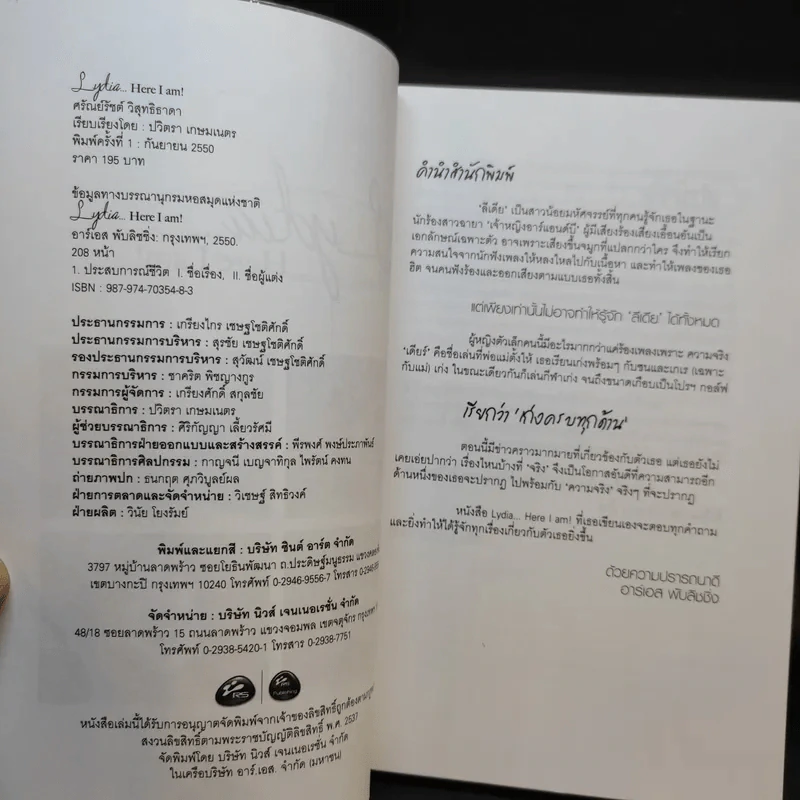 Lydia... Here I am!
ศรัณย์รัชต์ วิสุทธิธาดา
เรียบเรียงโดย : ปวิตรา เกษมเนตร
พิมพ์ครั้งที่ 1 : กันยายน 2550
ราคา 195 บาท
ข้อมูลทางบรรณานุกรมหอสมุดแห่งชาติ
Lydia... Here I am!
อาร์เอส พับลิชชิ่ง: กรุงเทพฯ, 2550.
208 หน้า
1. ประสบการณ์ชีวิต I. ชื่อเรื่อง, II. ชื่อผู้แต่ง
ISBN : 987-974-70354-8-3
ประธานกรรมการ : เกรียงไกร เชษฐโชติศักดิ์
ประธานกรรมการบริหาร : สุรชัย เชษฐโชติศักดิ์
รองประธานกรรมการบริหาร : สุวัฒน์ เชษฐโชติศักดิ์
กรรมการบริหาร : ชาคริต พิชญางกูร
กรรมการผู้จัดการ : เกรียงศักดิ์ สกุลชัย
บรรณาธิการ : ปวิตรา เกษมเนตร
ผู้ช่วยบรรณาธิการ : ศิริกัญญา เลี้ยวรัศมี
บรรณาธิการฝ่ายออกแบบและสร้างสรรค์ : พีรพงศ์ พงษ์ประภาพันธ์
บรรณาธิการศิลปกรรม : กาญจนี เบญจาทิกุล ไพรัตน์ คงทน
ถ่ายภาพปก : ธนกฤต ศุภวิบูลย์ผล
ฝ่ายการตลาดและจัดจำหน่าย : วิเชษฐ์ สิทธิวงค์
ฝ่ายผลิต : วินัย โยงรัมย์
พิมพ์และแยกสี : บริษัท ซินต์ อาร์ต จำกัด
3797 หมู่บ้านลาดพร้าว ซอยโยธินพัฒนา ถ.ประดิษฐ์มนูธรรม
เขตบางกะปิ กรุงเทพฯ 10240 โทรศัพท์ 0-2946-9556-7 โทรสาร
จัดจำหน่าย : บริษัท นิวส์ เจนเนอเรชั่น จำกัด
48/18 ซอยลาดพร้าว 15 ถนนลาดพร้าว แขวงจอมพล เขตจตุจักร
โทรศัพท์ 0-2938-5420-1 โทรสาร 0-2938-7751
RS RS Publishing
หนังสือเล่มนี้ได้รับการอนุญาตจัดพิมพ์จากเจ้าของลิขสิทธิ์ถูกต้อง
สงวนลิขสิทธิ์ตามพระราชบัญญัติลิขสิทธิ์ พ.ศ. 2537
จัดพิมพ์โดย บริษัท นิวส์ เจนเนอเรชั่น จำกัด
ในเครือบริษัท อาร์.เอส. จำกัด (มหาชน)
คำนำสำนักพิมพ์
'ลีเดีย' เป็นสาวน้อยมหัศจรรย์ที่ทุกคนรู้จักเธอในฐานะ
นักร้องสาวฉายา 'เจ้าหญิงอาร์แอนด์บี' ผู้มีเสียงร้องเสียงเอื้อนอันเป็น
เอกลักษณ์เฉพาะตัว อาจเพราะเสียงขึ้นจมูกที่แปลกกว่าใคร จึงทำให้เรียก
ความสนใจจากนักฟังเพลงให้หลงใหลไปกับเนื้อหา และทำให้เพลงของเธอ
ฮิต จนคนฟังร้องและออกเสียงตามแบบเธอทั้งสิ้น
แต่เพียงเท่านั้นไม่อาจทำให้รู้จัก 'ลีเดีย' ได้ทั้งหมด
ผู้หญิงตัวเล็กคนนี้มีอะไรมากกว่าแค่ร้องเพลงเพราะ ความจริง
'เดียร์' คือชื่อเล่นที่พ่อแม่ตั้งให้ เธอเรียนเก่งพร้อมๆ กับซนและเกเร (เฉพาะ
กับแม่) เก่ง ในขณะเดียวกันก็เล่นกีฬาเก่ง จนถึงขนาดเกือบเป็นโปรฯ กอล์ฟ
เรียกว่า 'สวยครบทุกด้าน'
ตอนนี้มีข่าวคราวมากมายที่เกี่ยวข้องกับตัวเธอ แต่เธอยังไม่
เคยเอ่ยปากว่า เรื่องไหนบ้างที่ 'จริง' จึงเป็นโอกาสอันดีที่ความสามารถอีก
ด้านหนึ่งของเธอจะปรากฏ ไปพร้อมกับ 'ความจริง' จริงๆ ที่จะปรากฏ
หนังสือ Lydia... Here I am! ที่เธอเขียนเองจะตอบทุกคำถาม
และยิ่งทำให้ได้รู้จักทุกเรื่องเกี่ยวกับตัวเธอยิ่งขึ้น
ด้วยความปรารถนาดี
อาร์เอส พับลิชชิ่ง